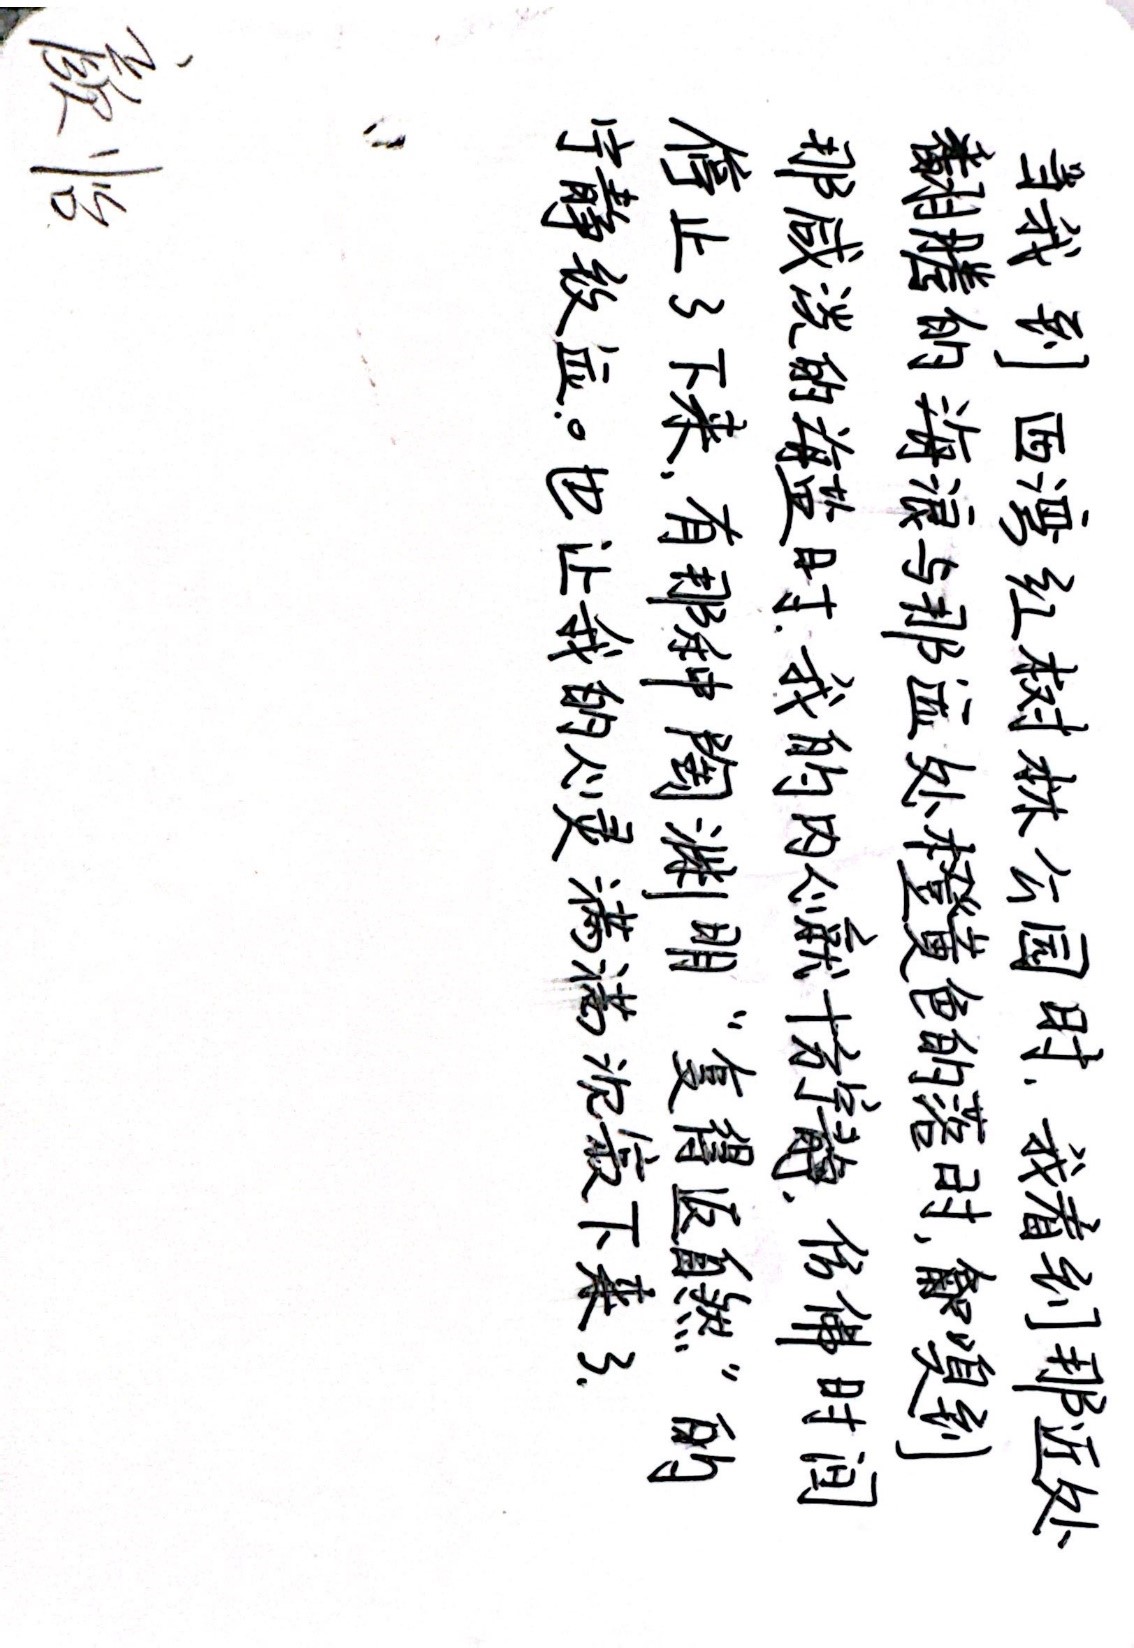 当我到西湾红树林公园时，我看到那近处
翻腾的海浪与那远处橙黄色的落日时，解嗅到
那咸淡的海盐时，我的内心就十分宁静，仿佛时间
停止了下来，有那种陶渊明“复得返自然”的
宁静致远。也让我的心灵满满沉寂下来了.